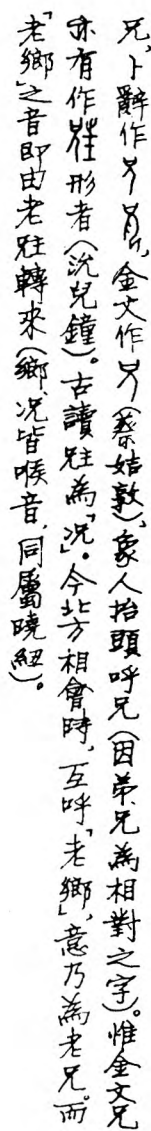 兄，卜辭作，金文作（蔡姞敦），象人抬頭呼兄（因弟兄為相對之字）。惟金文兄
亦有作𠒣形者（沇兒鐘）。古讀𠒣為「况」。今北方相會時，互呼「老鄉」，意乃為老兄。而
「老鄉」之音即由老𠒣轉來（鄉、况皆喉音，同屬曉紐）。